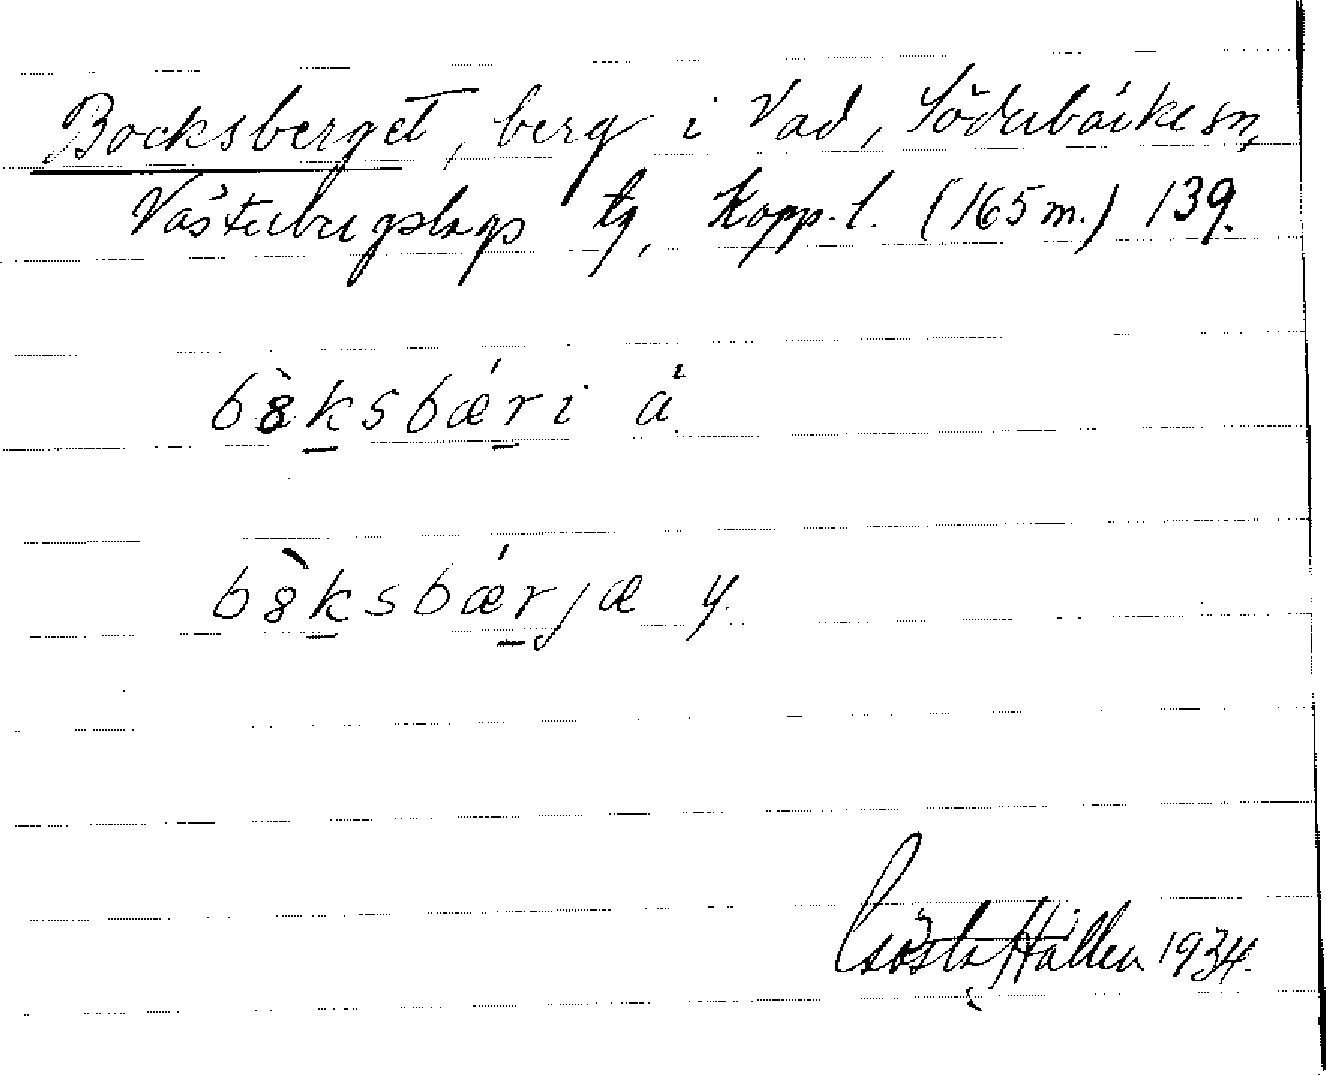 Bocksberget, berg i Vad, Söderbärke sn,
Västerbergslags tg, Kopp. l. (165 m.) 139.
bòksbǽri ä.
bòksbǽrjæ y.
Gösta Hällen 1934.